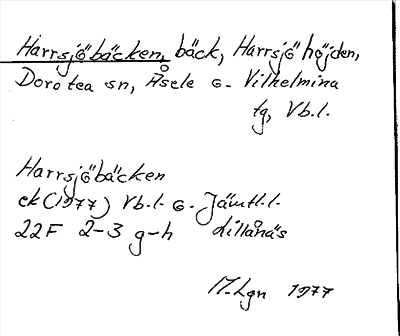 Harrsjöbäcken, bäck, Harrsjöhöjden,
Dorotea sn, Åsele o. Vilhelmina
tg, Vb.l.
Harrsjöbäcken
ek (1977) Vb.l. o. Jämtl.l.
22F 2-3 g-h dillånäs
M.Lgn 1977